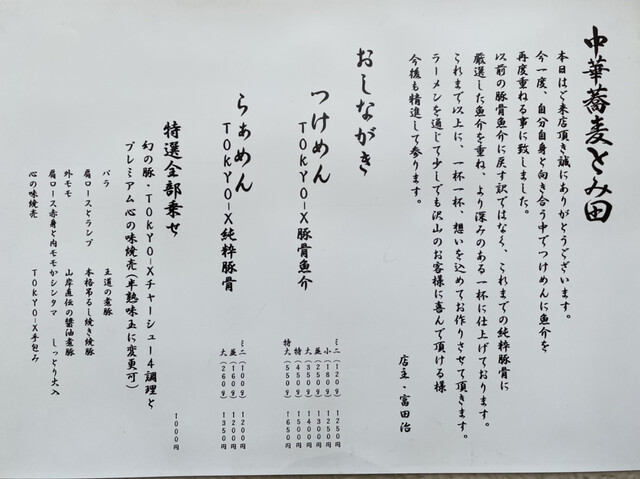 中華蕎麦とみ田
本日はご来店頂き誠にありがとうございます。
今一度、自分自身と向き合う中でつけめんに魚介を
再度重ねる事に致しました。
以前の豚骨魚介に戻す訳ではなく、これまでの純粋豚骨に
厳選した魚介を重ね、より深みのある一杯に仕上げております。
これまで以上に、一杯一杯、想いを込めてお作りさせて頂きます。
ラーメンを通じて少しでも沢山のお客様に喜んで頂ける様
今後も精進して参ります。
店主・富田治
おしながき
つけめん
TOKYO-X豚骨魚介
ミニ(120g) 1200円
小(180g) 1250円
並(250g) 1300円
大(350g) 1400円
特(450g) 1500円
特大(550g) 1650円
らぁめん
TOKYO-X純粋豚骨
ミニ(100g) 1200円
並(160g) 1200円
大(260g) 1350円
特選全部乗せ
幻の豚・TOKYO-Xチャーシュー4調理と
プレミアム心の味焼売(半熟味玉に変更可) 1000円
バラ 王道の煮豚
肩ロースとランプ 本格吊るし焼き焼豚
外モモ 山岸直伝の醤油煮豚
肩ロース赤身と内モモかシンタマ しっとり火入
心の味焼売 TOKYO-X手包み